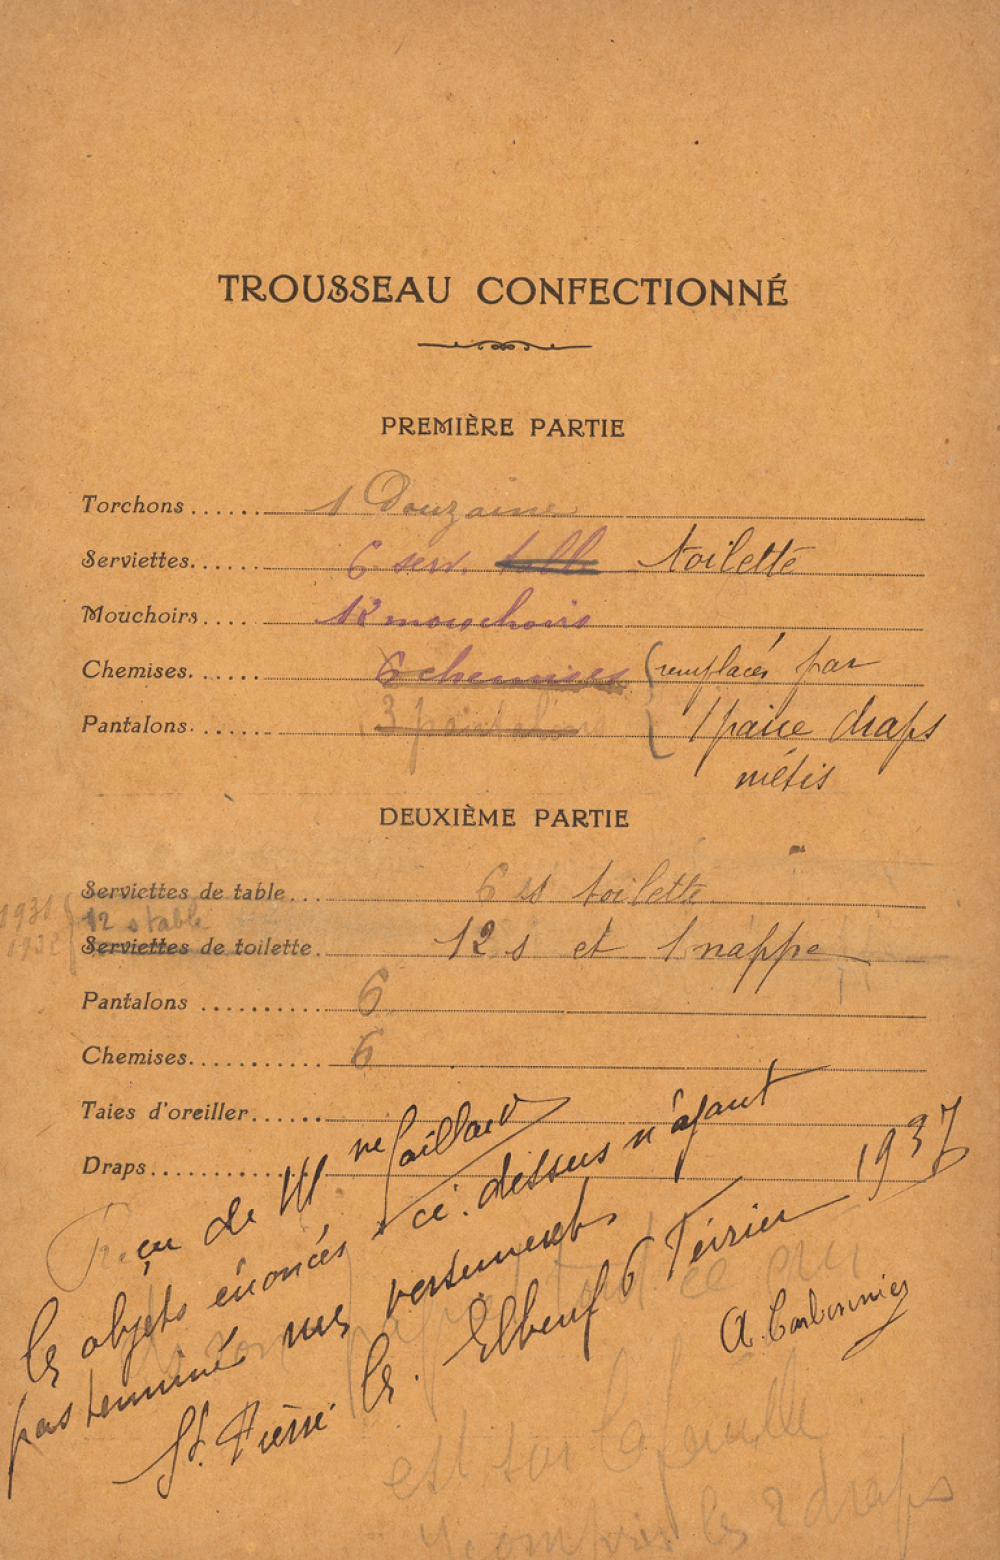 TROUSSEAU CONFECTIONNÉ
PREMIÈRE PARTIE
Torchons ...... 1 Douzaine
Serviettes...... 6 serv. toilette
Mouchoirs..... 12 mouchoirs
Chemises...... 6 chemises remplacés par
Pantalons....... 3 pantalons 1 paire draps
métis
DEUXIÈME PARTIE
Serviettes de table... 6 s toilette
1931 12 s table
1932
Serviettes de toilette. 12 s et 1 nappe
Pantalons ........... 6
Chemises........... 6
Taies d'oreiller......
Draps..............
Reçu de Mme Gaillard
les objets énoncés ci-dessus n'ayant
pas terminé mes versements
St. Pierre les Elbeuf 6 Février 1937
A. Carbonnier
tout ce qui
est sur la feuille
y compris les 2 draps